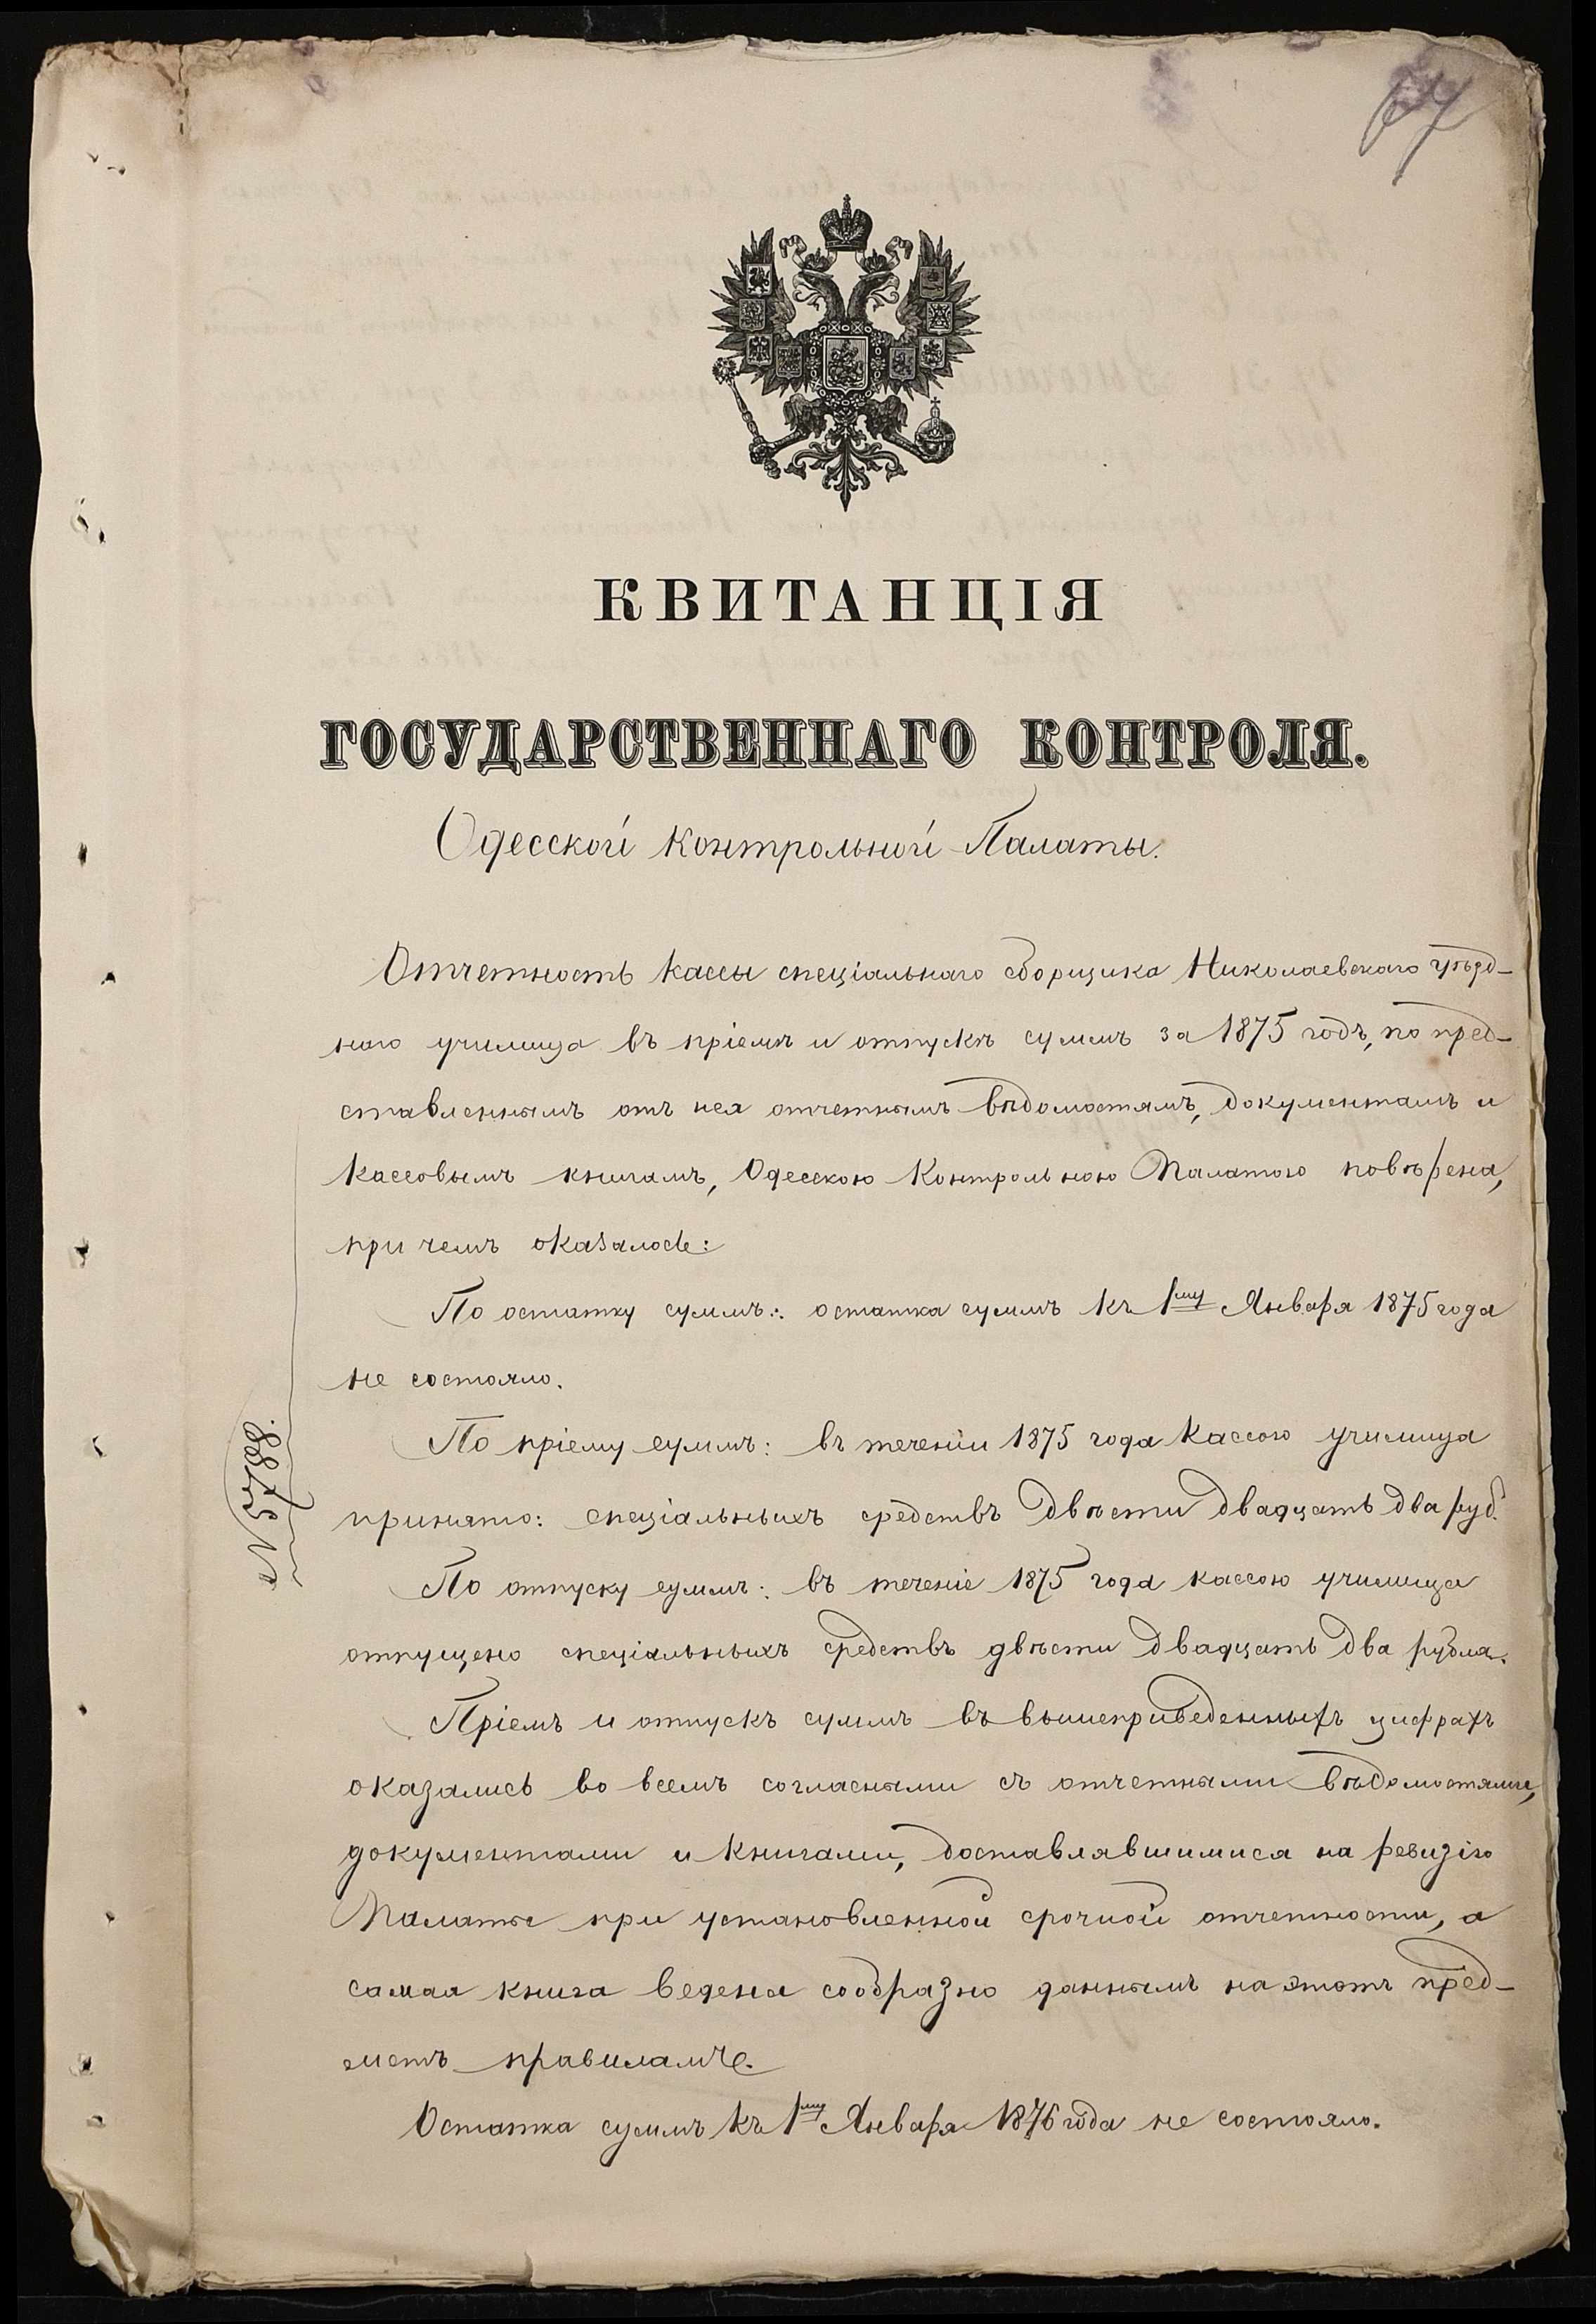 КВИТАНЦІЯ
ГОСУДАРСТВЕННАГО КОНТРОЛЯ.
Одесской Контрольной Палаты.
Отчетность кассы спеціальнаго сборщика Николаевскаго уѣзд-
наго училища въ пріемѣ и отпускѣ суммъ за 1875 годъ, по пред-
ставленнымъ отъ нея отчетнымъ вѣдомостямъ, документамъ и
кассовымъ книгамъ, Одесскою Контрольною Палатою повѣрена,
при чемъ оказалось:
По остатку суммъ: остатка суммъ къ 1му Января 1875 года
не состояло.
По пріему суммъ: въ теченіи 1875 года кассою училища
принято: спеціальныхъ средствъ двѣсти двадцать два руб.
По отпуску суммъ: въ теченіе 1875 года кассою училища
отпущено спеціальныхъ средствъ двѣсти двадцать два рубля.
Пріемъ и отпускъ суммъ въ вышеприведенныхъ цифрахъ
оказались во всемъ согласными съ отчетными вѣдомостями,
документами и книгами, доставлявшимися на ревизію
Палаты при установленной срочной отчетности, а
самая книга ведена сообразно даннымъ на этотъ пред-
метъ правиламъ.
Остатка суммъ къ 1му Января 1876 года не состояло.